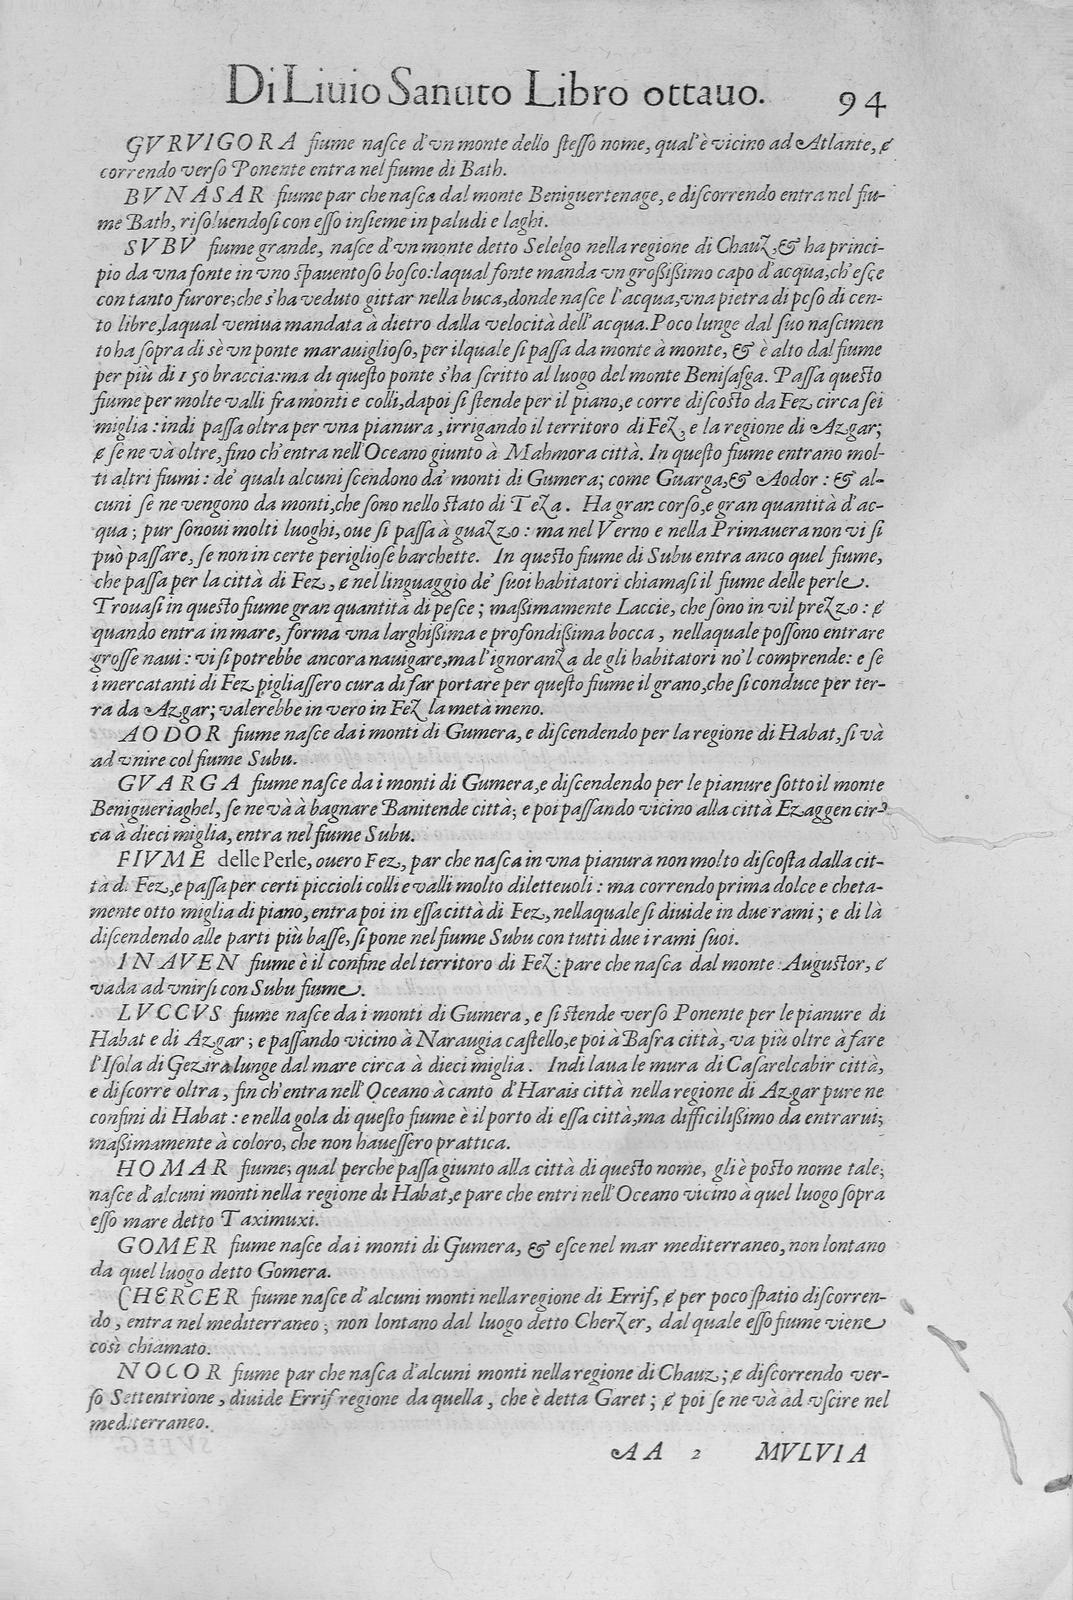 Di Liuio Sanuto Libro ottauo. 94
GVRVIGORA fiume nasce d'vn monte dello stesso nome, qual'è vicino ad Atlante, &
correndo verso Ponente entra nel fiume di Bath.
BVNASAR fiume par che nasca dal monte Beniguertenage, e discorrendo entra nel fiu-
me Bath, risoluendosi con esso insieme in paludi e laghi.
SVBV fiume grande, nasce d'vn monte detto Selelgo nella regione di Chauz, & ha princi-
pio da vna fonte in vno spauentoso bosco: laqual fonte manda vn grossissimo capo d'acqua, ch'esce
con tanto furore; che s'ha veduto gittar nella buca, donde nasce l'acqua, vna pietra di peso di cen-
to libre, laqual veniua mandata à dietro dalla velocità dell'acqua. Poco lunge dal suo nascimen
to ha sopra di sè vn ponte marauiglioso, per ilquale si passa da monte à monte, & è alto dal fiume
per più di 150 braccia: ma di questo ponte s'ha scritto al luogo del monte Benisasga. Passa questo
fiume per molte valli fra monti e colli, dapoi si stende per il piano, e corre discosto da Fez circa sei
miglia: indi passa oltra per vna pianura, irrigando il territoro di Fez, e la regione di Azgar;
& se ne và oltre, fino ch'entra nell'Oceano giunto à Mahmora città. In questo fiume entrano mol-
ti altri fiumi: de' quali alcuni scendono da' monti di Gumera; come Guarga, & Aodor: & al-
cuni se ne vengono da monti, che sono nello stato di Teza. Ha gran corso, e gran quantità d'ac-
qua; pur sonoui molti luoghi, oue si passa à guazzo: ma nel Verno e nella Primauera non vi si
può passare, se non in certe perigliose barchette. In questo fiume di Subu entra anco quel fiume,
che passa per la città di Fez, & nel linguaggio de' suoi habitatori chiamasi il fiume delle perle.
Trouasi in questo fiume gran quantità di pesce; massimamente Laccie, che sono in vil prezzo: &
quando entra in mare, forma vna larghissima e profondissima bocca, nellaquale possono entrare
grosse naui: vi si potrebbe ancora nauigare, ma l'ignoranza de gli habitatori no'l comprende: e se
i mercatanti di Fez pigliassero cura di far portare per questo fiume il grano, che si conduce per ter-
ra da Azgar; valerebbe in vero in Fez la metà meno.
AODOR fiume nasce da i monti di Gumera, e discendendo per la regione di Habat, si và
ad vnire col fiume Subu.
GVARGA fiume nasce da i monti di Gumera, e discendendo per le pianure sotto il monte
Benigueriaghel, se ne và à bagnare Banitende città; e poi passando vicino alla città Ezaggen cir-
ca à dieci miglia, entra nel fiume Subu.
FIVME delle Perle, ouero Fez, par che nasca in vna pianura non molto discosta dalla cit-
tà di Fez, e passa per certi piccioli colli e valli molto diletteuoli: ma correndo prima dolce e cheta-
mente otto miglia di piano, entra poi in essa città di Fez, nellaquale si diuide in due rami; e di là
discendendo alle parti più basse, si pone nel fiume Subu con tutti due i rami suoi.
INAVEN fiume è il confine del territoro di Fez: pare che nasca dal monte Augustor, &
vada ad vnirsi con Subu fiume.
LVCCVS fiume nasce da i monti di Gumera, e si stende verso Ponente per le pianure di
Habat e di Azgar; e passando vicino à Naraugia castello, e poi à Basra città, va più oltre à fare
l'Isola di Gezira lunge dal mare circa à dieci miglia. Indi laua le mura di Casarelcabir città,
e discorre oltra, fin ch'entra nell'Oceano à canto d'Harais città nella regione di Azgar pure ne
confini di Habat: e nella gola di questo fiume è il porto di essa città, ma difficilissimo da entrarui;
massimamente à coloro, che non hauessero prattica.
HOMAR fiume; qual perche passa giunto alla città di questo nome, gli è posto nome tale;
nasce d'alcuni monti nella regione di Habat, e pare che entri nell'Oceano vicino à quel luogo sopra
esso mare detto Taximuxi.
GOMER fiume nasce da i monti di Gumera, & esce nel mar mediterraneo, non lontano
da quel luogo detto Gomera.
CHERCER fiume nasce d'alcuni monti nella regione di Errif, & per poco spatio discorren-
do, entra nel mediterraneo; non lontano dal luogo detto Cherzer, dal quale esso fiume viene
così chiamato.
NOCOR fiume par che nasca d'alcuni monti nella regione di Chauz; & discorrendo ver-
so Settentrione, diuide Errif regione da quella, che è detta Garet; & poi se ne và ad vscire nel
mediterraneo.
AA 2 MVLVIA